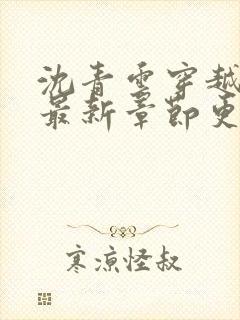 沈青云穿越
最新章节更
寒凉怪叔